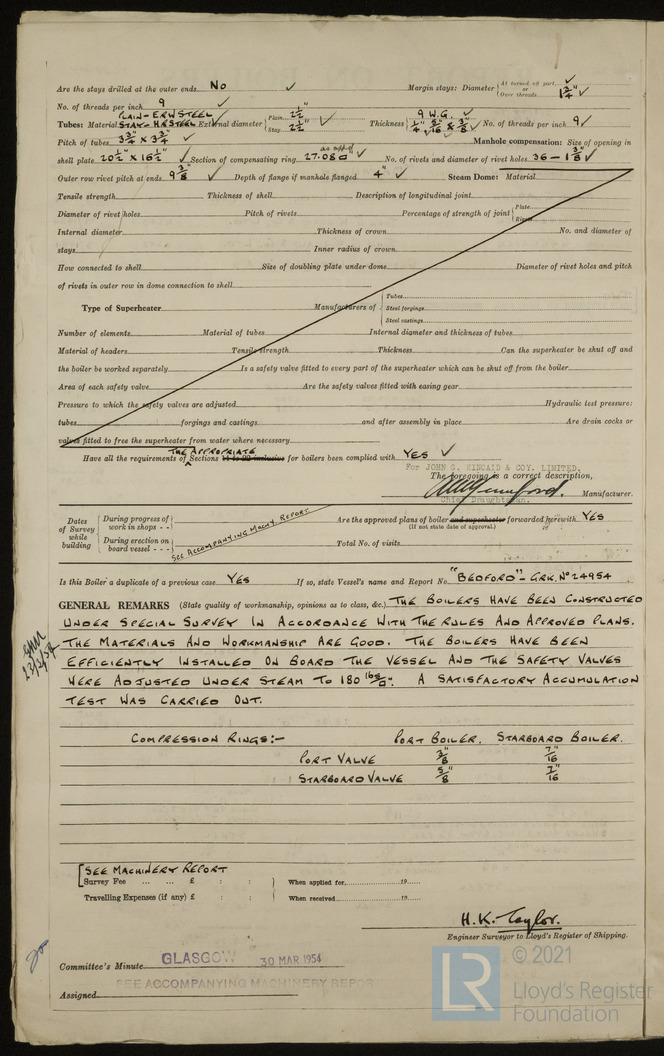 Are the stays drilled at the outer ends No ✓ Margin stays: Diameter { At turned off part, or Over threads 1 3/4" ✓
No. of threads per inch 9 ✓
Tubes: Material PLAIN-ERW STEEL STAY-H.R STEEL External diameter { Plain 2 1/2" Stay 2 1/2" ✓ Thickness { 9 W.G. ✓ 1/4" 5/16 & 3/8" ✓ No. of threads per inch 9 ✓
Pitch of tubes 3 3/4" x 3 3/4" ✓ Manhole compensation: Size of opening in
shell plate 20 1/2" x 16 1/2" ✓ Section of compensating ring 27.08 □" as app'd ✓ No. of rivets and diameter of rivet holes 36 - 1 3/8" ✓
Outer row rivet pitch at ends 9 3/8" ✓ Depth of flange if manhole flanged 4" ✓ Steam Dome: Material
Tensile strength Thickness of shell Description of longitudinal joint
Diameter of rivet holes Pitch of rivets Percentage of strength of joint { Plate Rivets
Internal diameter Thickness of crown No. and diameter of
stays Inner radius of crown
How connected to shell Size of doubling plate under dome Diameter of rivet holes and pitch
of rivets in outer row in dome connection to shell
Type of Superheater Manufacturers of { Tubes Steel forgings Steel castings
Number of elements Material of tubes Internal diameter and thickness of tubes
Material of headers Tensile strength Thickness Can the superheater be shut off and
the boiler be worked separately Is a safety valve fitted to every part of the superheater which can be shut off from the boiler
Area of each safety valve Are the safety valves fitted with easing gear
Pressure to which the safety valves are adjusted Hydraulic test pressure:
tubes forgings and castings and after assembly in place Are drain cocks or
valves fitted to free the superheater from water where necessary
THE APPROPRIATE
Have all the requirements of Sections 14 to 22 inclusive for boilers been complied with YES ✓
For JOHN G. KINCAID & COY. LIMITED.
The foregoing is a correct description,
Manufacturer.
Chief Draughtsman.
Dates of Survey while building { During progress of work in shops - - During erection on board vessel - - -
SEE ACCOMPANYING MACHY. REPORT
Are the approved plans of boiler and superheater forwarded herewith YES
(If not state date of approval)
Total No. of visits
Is this Boiler a duplicate of a previous case YES If so, state Vessel's name and Report No. "BEDFORD" - GRK. No 24954
GENERAL REMARKS (State quality of workmanship, opinions as to class, &c.) THE BOILERS HAVE BEEN CONSTRUCTED
UNDER SPECIAL SURVEY IN ACCORDANCE WITH THE RULES AND APPROVED PLANS.
THE MATERIALS AND WORKMANSHIP ARE GOOD. THE BOILERS HAVE BEEN
EFFICIENTLY INSTALLED ON BOARD THE VESSEL AND THE SAFETY VALVES
WERE ADJUSTED UNDER STEAM TO 180 lbs/□". A SATISFACTORY ACCUMULATION
TEST WAS CARRIED OUT.
COMPRESSION RINGS:- PORT BOILER. STARBOARD BOILER.
PORT VALVE 3/8" 7/16"
STARBOARD VALVE 5/8" 7/16"
SEE MACHINERY REPORT
Survey Fee ... ... £ : : } When applied for 19
Travelling Expenses (if any) £ : : } When received 19
H.K. Taylor.
Engineer Surveyor to Lloyd's Register of Shipping.
Committee's Minute GLASGOW 30 MAR 1954
Assigned SEE ACCOMPANYING MACHINERY REPORT
© 2021
LR Lloyd's Register
Foundation